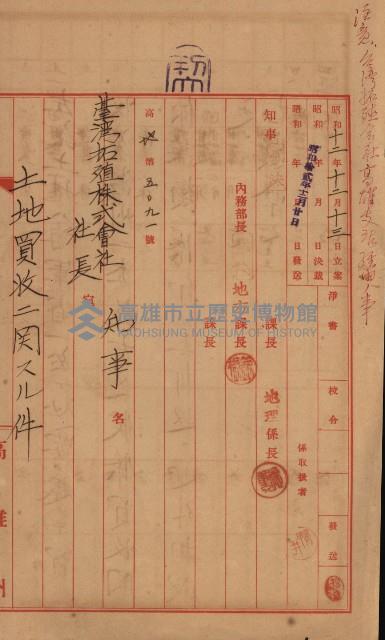 注意 台湾拓殖会社高雄支店経由ノ事
昭和十二年十二月十三日立案
淨書
校合
發送
昭和 年 月 日決裁
昭和 年 月 日發送
昭和拾貳年十二月廿日
係取扱者
知事
內務部長
地方課長
課長
課長
地理係長
高地第五〇九一號
知事名
臺灣拓殖株式會社
社長 宛
土地買收ニ関スル件
高雄州
高雄市立歷史博物館
KAOHSIUNG MUSEUM OF HISTORY